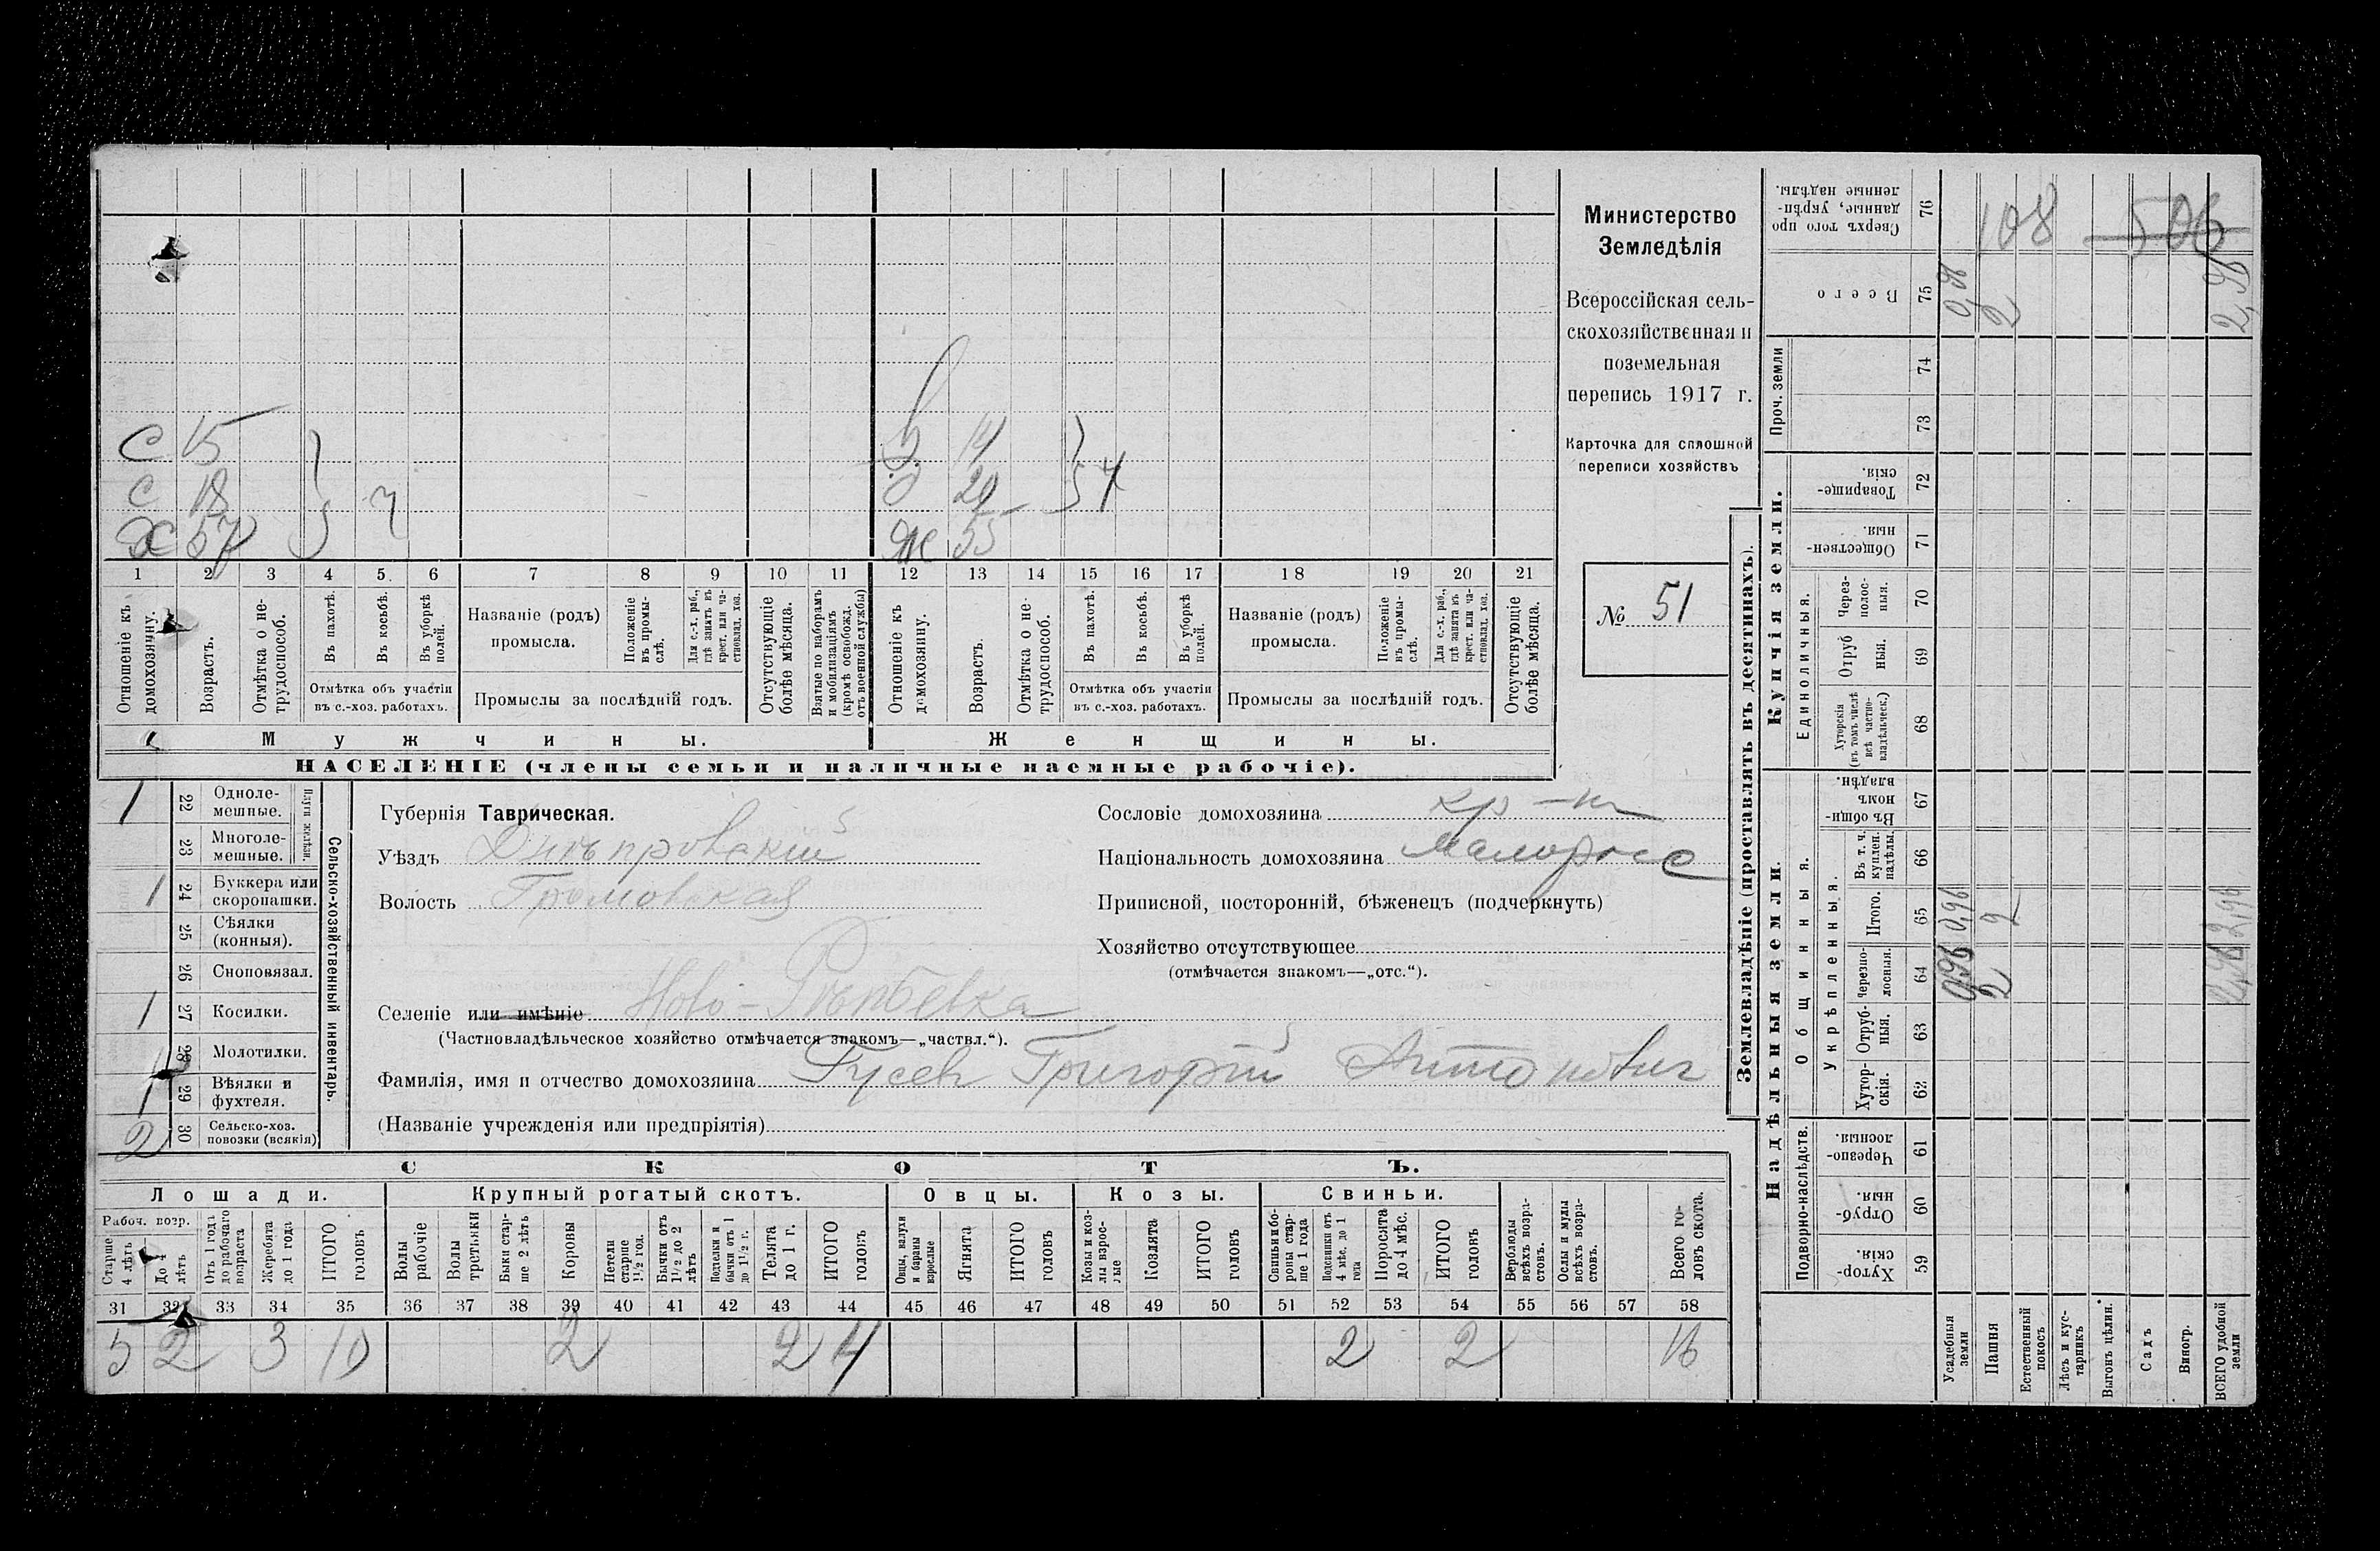 Министерство
Земледѣлія
Всероссійская сель-
скохозяйственная и
поземельная
перепись 1917 г.
Карточка для сплошной
переписи хозяйствъ
№ 51
С 15
С 18
Х 57
14
20
Ж 55
1 2 3 4 5 6 7 8 9 10 11 12 13 14 15 16 17 18 19 20 21
Отношеніе къ домохозяину.
Возрастъ.
Отмѣтка о не-трудоспособ.
Въ пахотѣ.
Въ косьбѣ.
Въ уборкѣ полей.
Отмѣтка объ участіи
въ с.-хоз. работахъ.
Названіе (родъ)
промысла.
Положеніе въ промы-слѣ.
Для с.-х. раб., гдѣ занятъ въ крест. или ча-стновлад. хоз.
Промыслы за послѣдній годъ.
Отсутствующіе болѣе мѣсяца.
Взятые по наборамъ и мобилизаціямъ (кромѣ освобожд. отъ военной службы)
Отношеніе къ домохозяину.
Возрастъ.
Отмѣтка о не-трудоспособ.
Въ пахотѣ.
Въ косьбѣ.
Въ уборкѣ полей.
Отмѣтка объ участіи
въ с.-хоз. работахъ.
Названіе (родъ)
промысла.
Положеніе въ промы-слѣ.
Для с.-х. раб., гдѣ занята въ крест. или ча-стновлад. хоз.
Промыслы за послѣдній годъ.
Отсутствующіе болѣе мѣсяца.
Мужчины.
Женщины.
НАСЕЛЕНІЕ (члены семьи и наличные наемные рабочіе).
Сельско-хозяйственный инвентарь.
Плуги желѣзн.
1 22 Одноле-мешные.
23 Многоле-мешные.
1 24 Буккера или скоропашки.
25 Сѣялки (конныя).
26 Сноповязал.
1 27 Косилки.
28 Молотилки.
1 29 Вѣялки и фухтеля.
2 30 Сельско-хоз. повозки (всякія)
Губернія Таврическая.
Уѣздъ Днѣпровскій
Волость Громовская
Селеніе или имѣніе Ново-Рѣпбевка
(Частновладѣльческое хозяйство отмѣчается знакомъ—„частвл.“).
Фамилія, имя и отчество домохозяина Гусев Григорій Антонович
(Названіе учрежденія или предпріятія)
Сословіе домохозяина кр-н
Національность домохозяина малоросс
Приписной, посторонній, бѣженецъ (подчеркнуть)
Хозяйство отсутствующее
(отмѣчается знакомъ—„отс.“).
СКОТЪ.
Лошади. Крупный рогатый скотъ. Овцы. Козы. Свиньи.
Рабоч. возр.
Старше 4 лѣтъ
До 4 лѣтъ
Отъ 1 года до рабочаго возраста
Жеребята до 1 года
ИТОГО головъ
Волы рабочіе
Волы третьяки
Быки стар-ше 2 лѣтъ
Коровы
Нетели старше 1½ год.
Бычки отъ 1½ до 2 лѣтъ
Подтелки и бычки отъ 1 до 1½ г.
Телята до 1 г.
ИТОГО головъ
Овцы, валухи и бараны взрослые
Ягнята
ИТОГО головъ
Козы и коз-лы взрос-лые
Козлята
ИТОГО головъ
Свиньи и бо-ровы стар-ше 1 года
Подсвинки отъ 4 мѣс. до 1 года
Поросята до 4 мѣс.
ИТОГО головъ
Верблюды всѣхъ возра-стовъ.
Ослы и мулы всѣхъ возра-стовъ.
Всего го-ловъ скота.
31 32 33 34 35 36 37 38 39 40 41 42 43 44 45 46 47 48 49 50 51 52 53 54 55 56 57 58
5 2 3 10 2 2 4 2 2 16
Землевладѣніе (проставлять въ десятинахъ).
Надѣльныя земли.
Купчія земли.
Проч. земли
Подворно-наслѣдств.
Общинныя.
Укрѣпленныя.
Единоличныя.
Хутор-скія. 59
Отруб-ныя. 60
Черезпо-лосныя. 61
Хутор-скія. 62
Отруб-ныя. 63
Черезпо-лосныя. 64
Итого. 65
Въ т. ч. куплен. надѣлы. 66
Въ общи-номъ владѣн. 67
Хуторскія (въ томъ числѣ всѣ частно-владѣльческ.) 68
Отруб ныя. 69
Через-полос-ныя. 70
Обществен-ныя. 71
Товарище-скія. 72
73
74
Всего 75
Сверхъ того про данные, укрѣп-ленные надѣлы. 76
Усадебныя земли 0,96 0,96 0,96
Пашня 2 2 2
Естественный покосъ
Лѣсъ и кус-тарникъ
Выгонъ цѣлин.
Садъ
Виногр.
ВСЕГО удобной земли 2,96 2,96 2,96
108
506